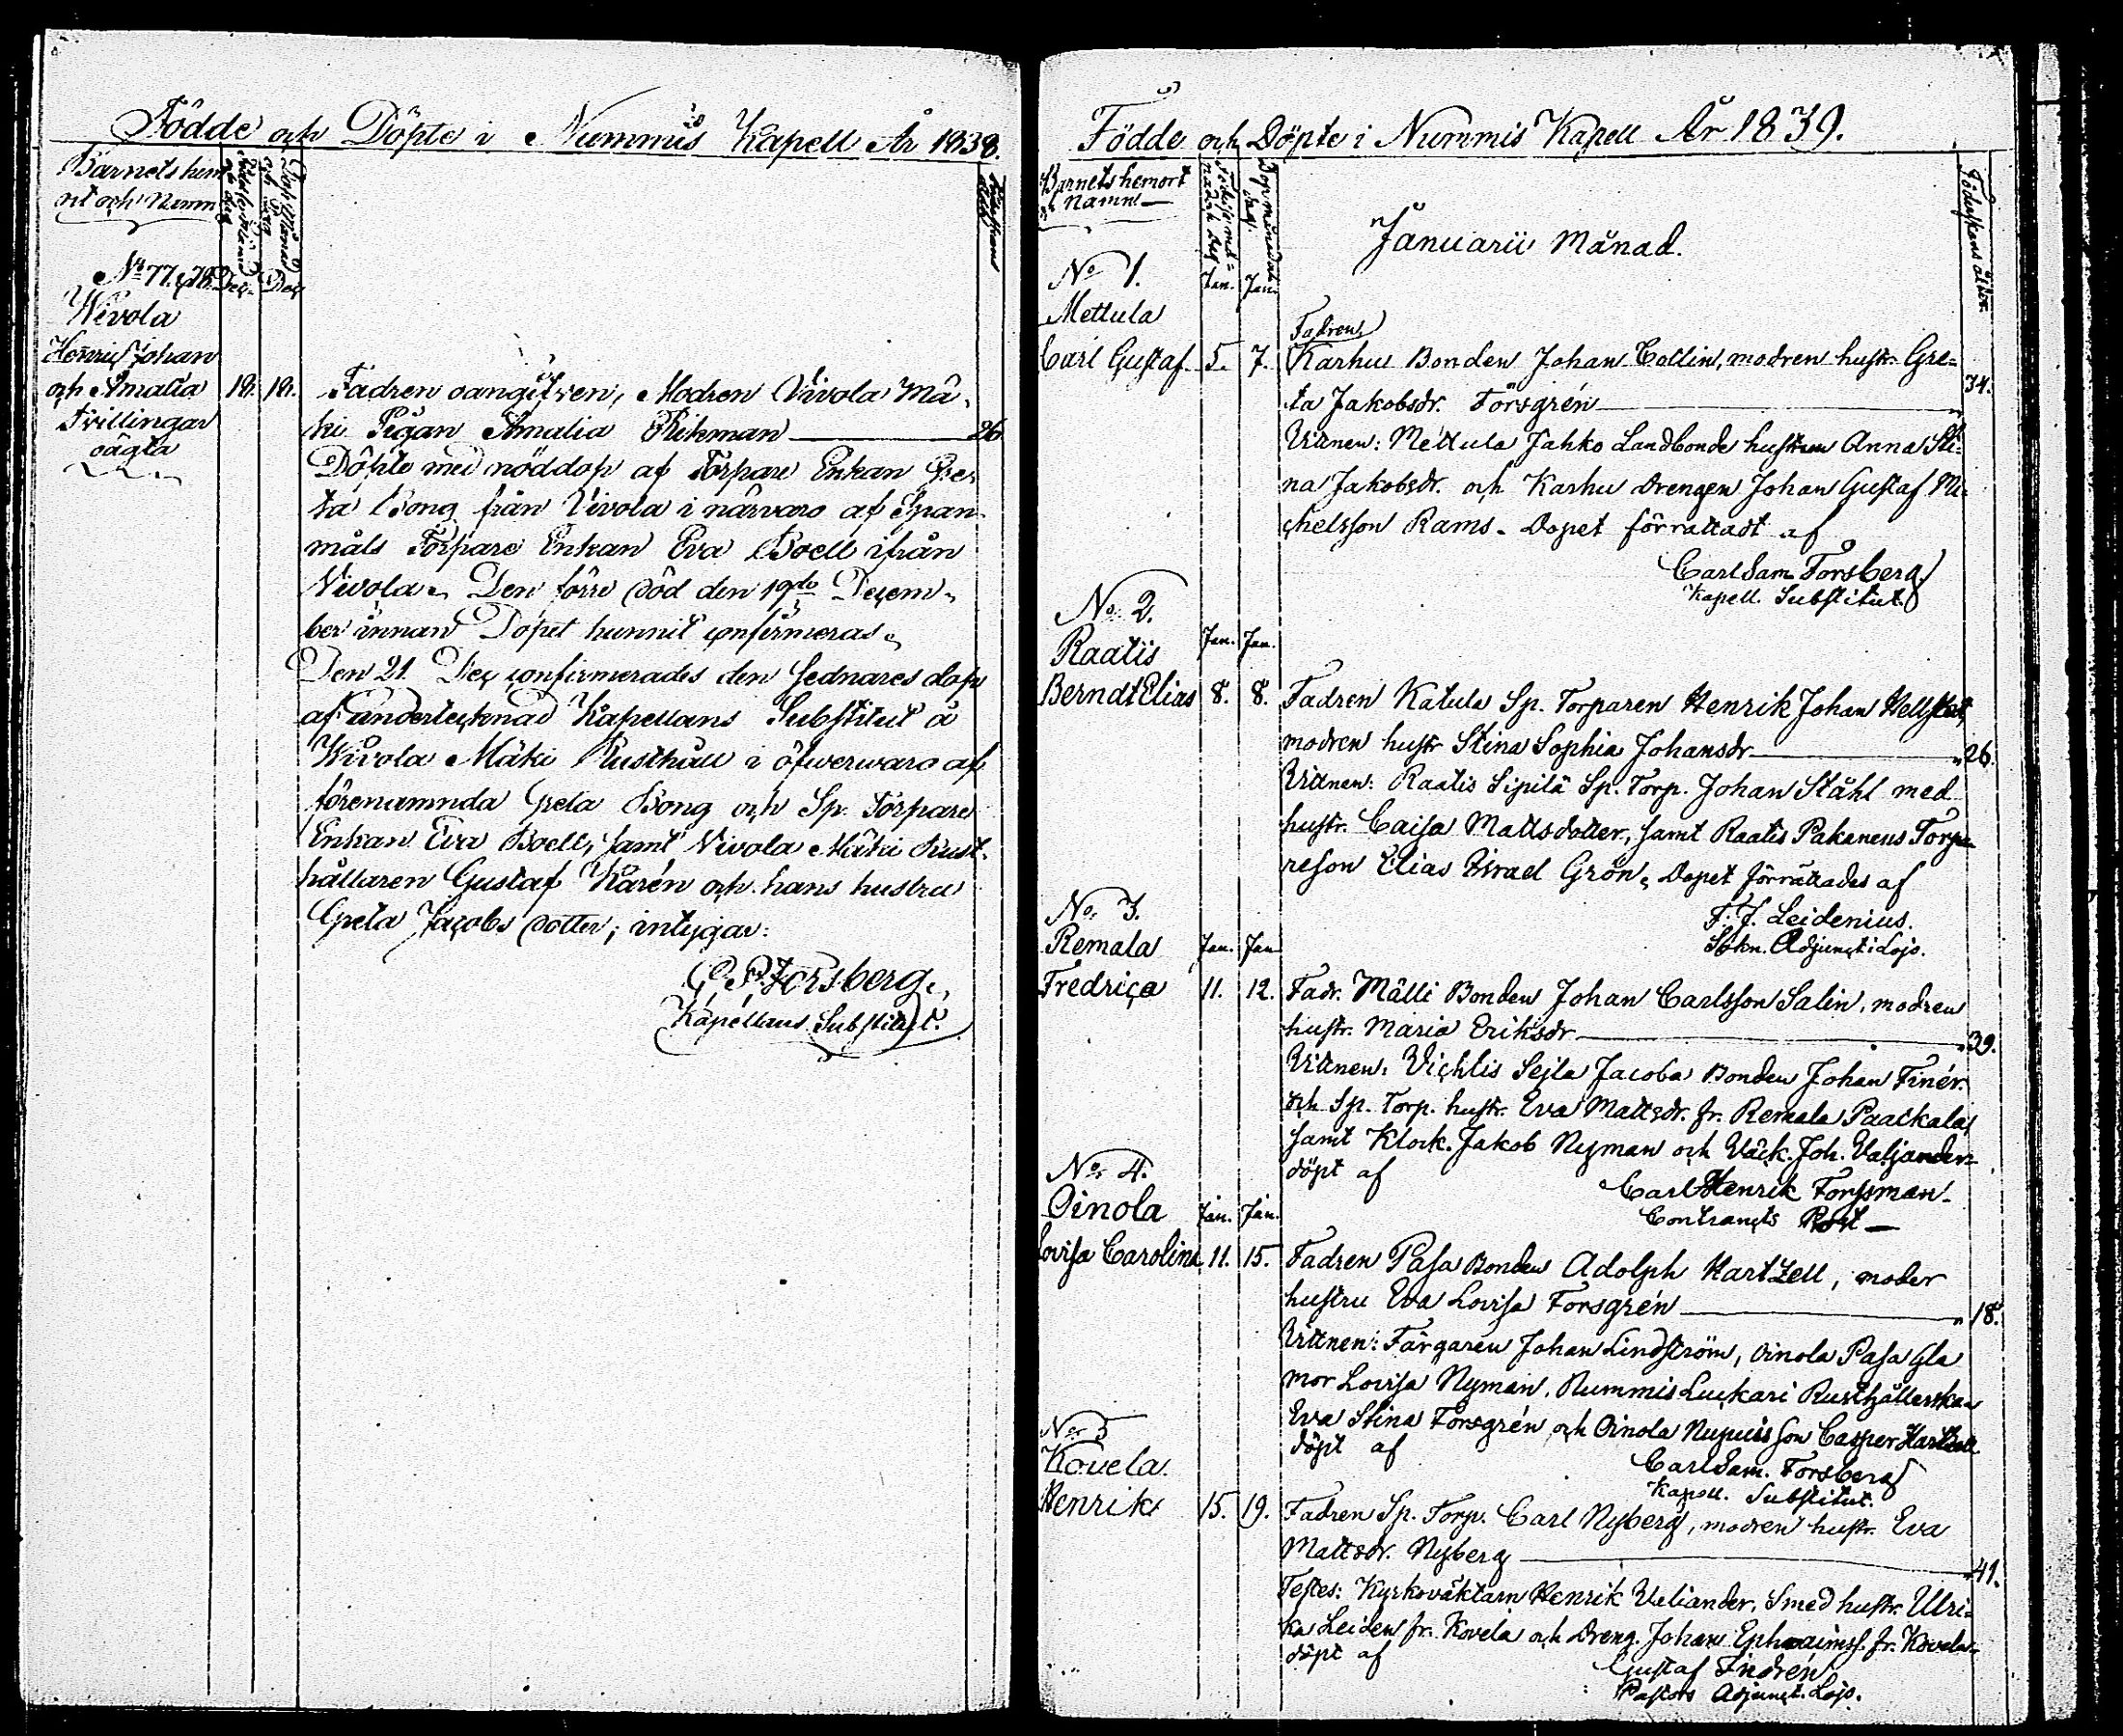 Födde och Döpte i Nummis Kapell År 1838.
Barnets hem
ort och Namn
No 77. & 78. Dec. Dec.
Wivola
Henric Johan
och Amalia 18. 18. Fadren oangifven, Modren Vivola Mä
Tvillingar
oägta
ki Pigan Amalia Rikman 26
Döpte med nöddop af Torpare Enkan Gre
ta Bong från Vivola i närvaro af Span
måls Torpare Enkan Eva Boell ifrån
Vivola. Den förre död den 19de Decem
ber innan Dopet hunnit confirmeras.
Den 21 Dec confirmerades den sednares dop
af undertecknad Kapellans Substitut å
Wivola Mäki Rusthåll i öfwerwaro af
förenamnda Greta Bong och Sp. Torpare
Enkan Eva Boell, samt Vivola Mäki Rust-
hållaren Gustaf Karén och hans hustru
Greta Jacobs dotter; intygar:
C S Forsberg.
Kapellans Substitut.
Födde och Döpte i Nummis Kapell År 1839.
Barnets hemort
och Namn
Födelse må-
nad och dag
Dop månad och
dag.
Föderskans ålder
Januarii Månad.
No 1. Jan. Jan.
Mettula
Fadren
Carl Gustaf. 5. 7. Karhu Bonden Johan Collin, modren hustr. Gre-
ta Jakobsdr. Forsgrén 34.
Vittnen: Mettula Jahko Landbonde hustrun Anna Sti-
na Jakobsdr. och Karhu Drengen Johan Gustaf Mi-
chelsson Rams. Dopet förrättadt af
Carl Sam. Forsberg
Kapell. Substitut.
No 2.
Raatis Jan. Jan.
Berndt Elias 8. 8. Fadren Katula Sp. Torparen Henrik Johan Hellstedt,
modren hustr Stina Sophia Johansdr 26.
Vittnen: Raatis Sipilä Sp. Torp. Johan Ståhl med
hustr. Caisa Mattsdotter, samt Raatis Pakanens Torpa-
reson Elias Israel Grön, Dopet förrättades af
F. J. Leidenius.
Sokn. Adjunct i Lojo.
No. 3.
Remala Jan. Jan
Fredrica 11. 12. Fadr. Mälli Bonden Johan Carlsson Salin, modren
hustr. Maria Eriksdr 39.
Vittnen: Vichtis Sejla Jacoba Bonden Johan Finér.
och Sp. Torp. hustr. Eva Mattsdr. fr. Remala Paackala,
samt Klock. Jakob Nyman och Väck. Joh. Valjander-
döpt af
Carl Henrik Forssman.
Contracts Prost
No 4.
Oinola Jan. Jan.
Lovisa Carolina 11. 15. Fadren Pasa Bonden Adolph Hartzell, moder
hustru Eva Lovisa Forsgrén 18.
Vittnen: Färgaren Johan Lindström, Oinola Pasa Gla
mor Lovisa Nyman, Nummis Luckari Rusthållerskan
Eva Stina Forsgrén och Oinola Nupuis son Casper Hartzell
döpt af
Carl Sam. Forsberg
Kapell. Substitut.
No 5
Kovela.
Henrik 15. 19. Fadren Sp. Torp. Carl Nyberg, modren hustr. Eva
Mattsdr. Nyberg 41.
Testes: Kyrkoväktarn Henrik Veliander, Smed hustr. Ulri-
ka Leiden fr. Kovela och Dreng. Johan Ephraimss. fr. Kovela-
döpt af
Gustaf Findrén
Pastors Adjunct. Lojo.